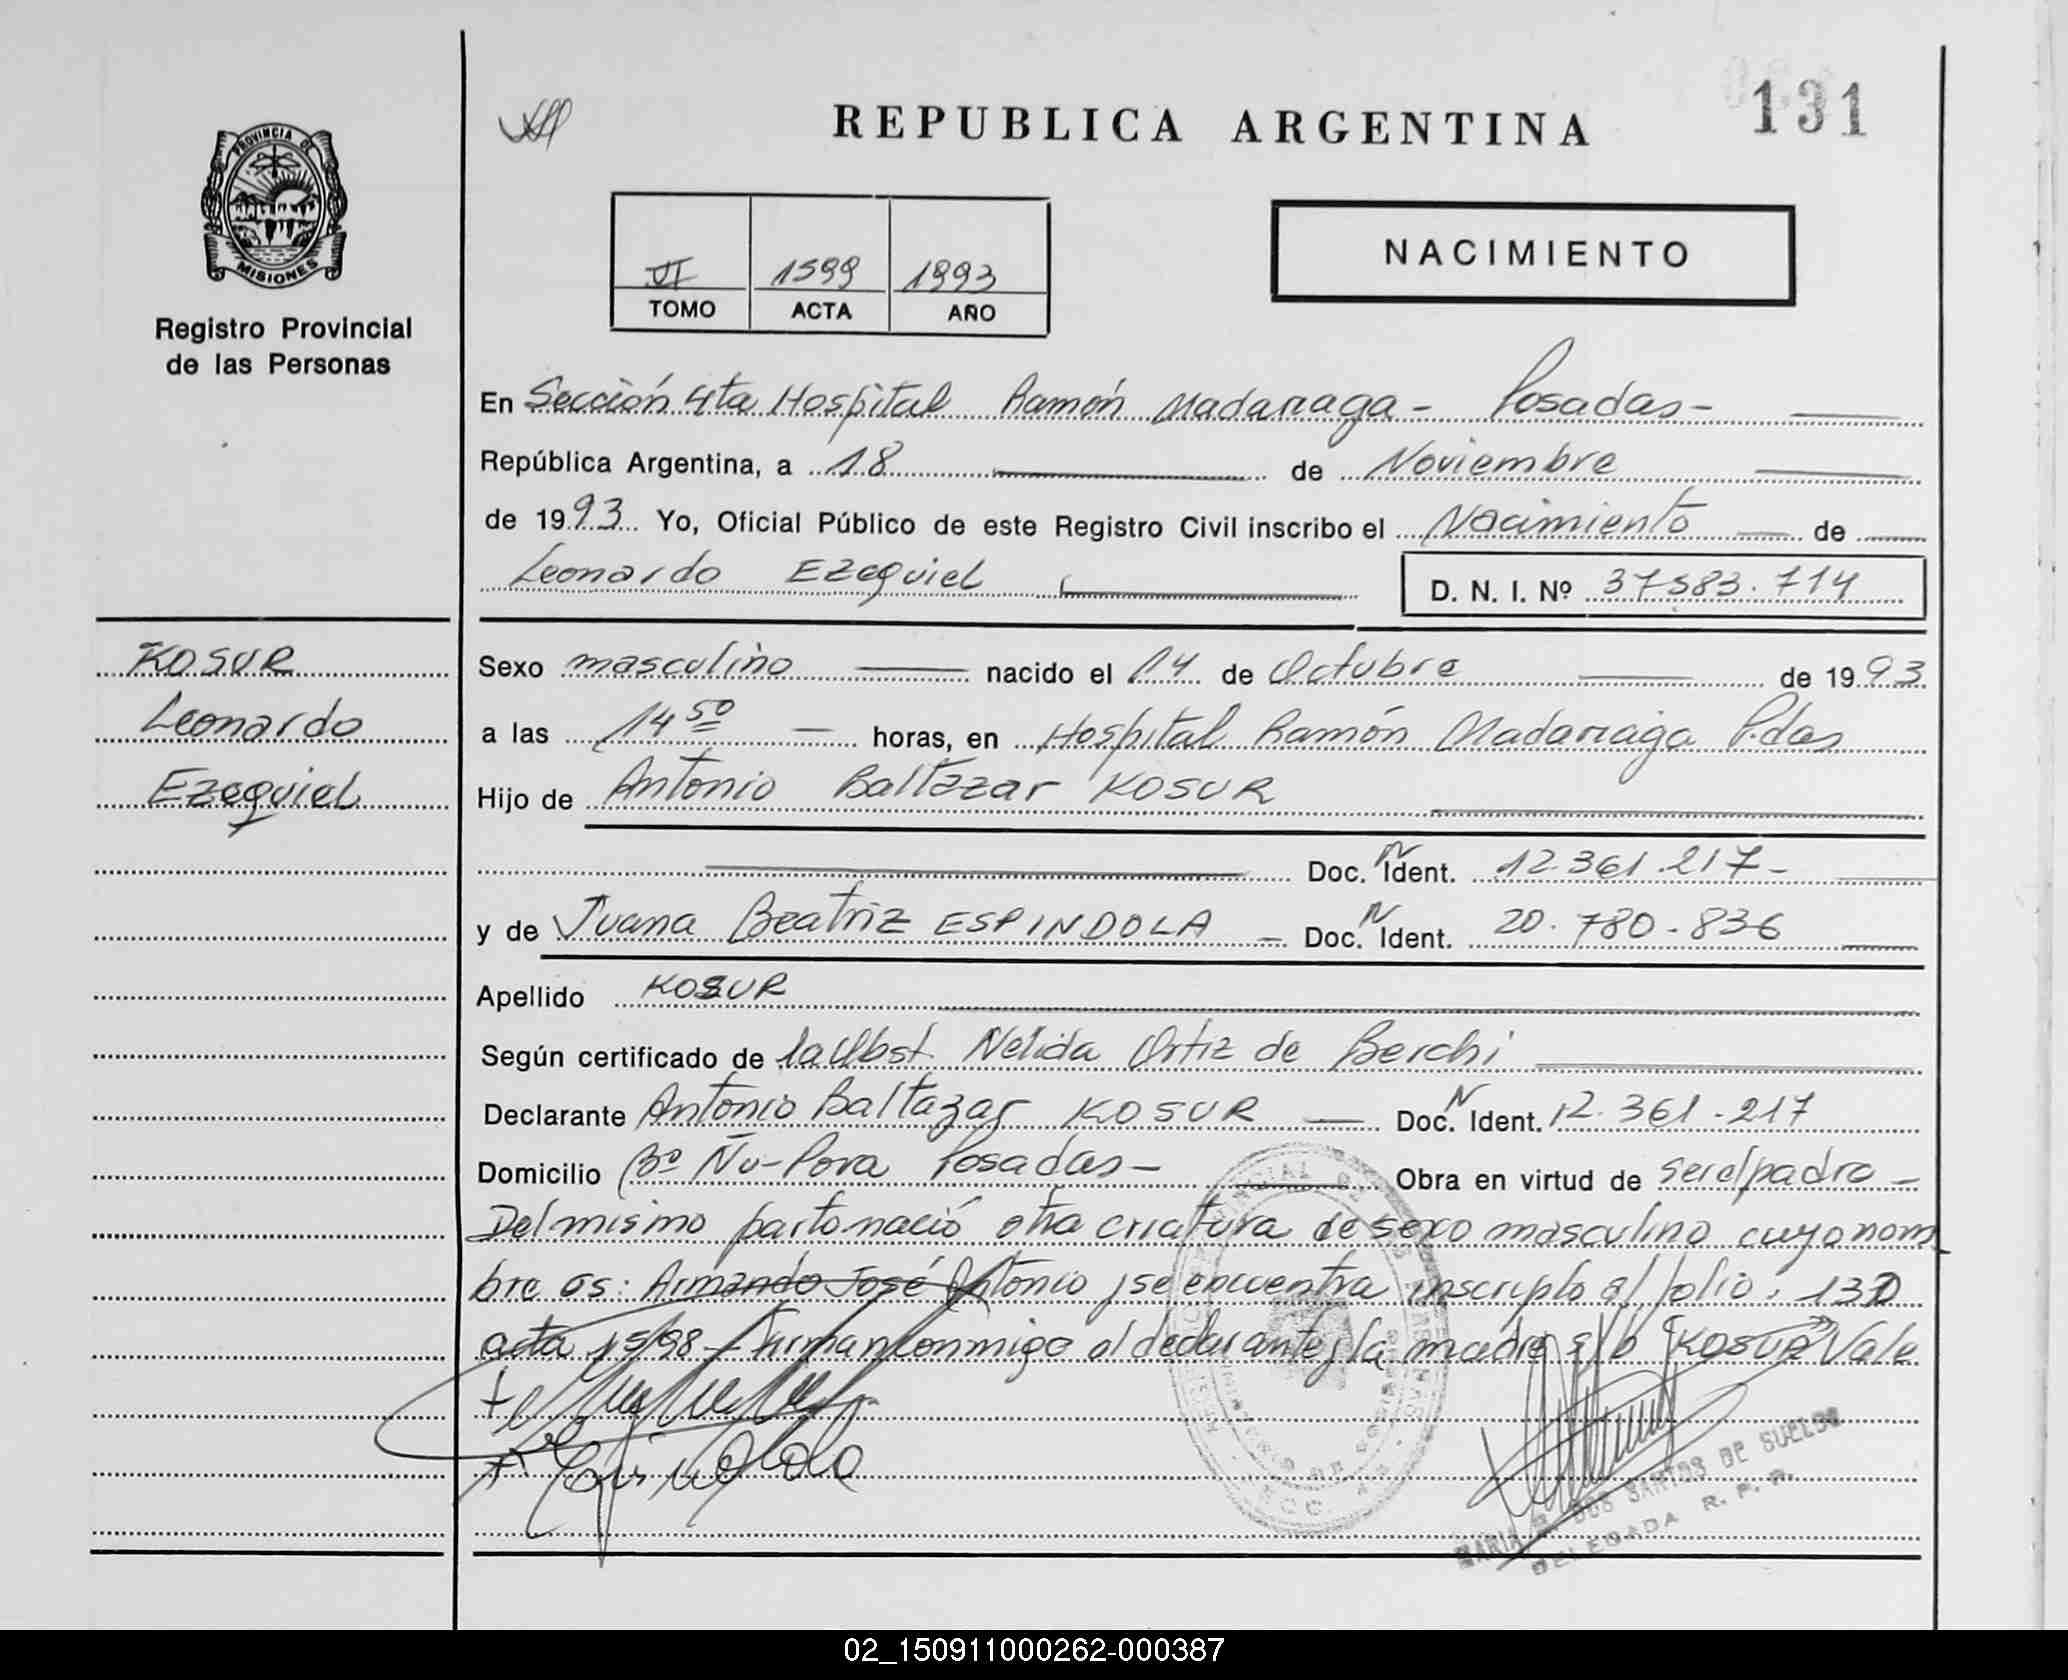 131
REPUBLICA ARGENTINA
PROVINCIA DE
MISIONES
Registro Provincial
de las Personas
VI 1599 1993
TOMO ACTA AÑO
NACIMIENTO
En Sección 4ta Hospital Ramón Madariaga - Posadas -
República Argentina, a 18 de Noviembre
de 1993 Yo, Oficial Público de este Registro Civil inscribo el Nacimiento de
Leonardo Ezequiel D. N. I. Nº 37583.714
KOSUR
Leonardo
Ezequiel
Sexo masculino nacido el 14 de Octubre de 1993
a las 14 50 horas, en Hospital Ramón Madariaga P.das
Hijo de Antonio Baltazar KOSUR
Doc. N Ident. 12.361.217-
y de Juana Beatriz ESPINDOLA - Doc. N Ident. 20.780.836
Apellido KOSUR
Según certificado de la Obst. Nelida Ortiz de Berchi
Declarante Antonio Baltazar KOSUR Doc. N Ident. 12.361.217
Domicilio Bº Ñu-Pora Posadas- Obra en virtud de ser el padre -
Del mismo parto nació otra criatura de sexo masculino cuyo nom
bre es: Armando José Antonio, se encuentra inscripto al folio: 130
acta 1598 - Firman conmigo el declarante y la madre s/b "KOSUR" Vale
MARIA DOS SANTOS DE SUELDO
DELEGADA R. P. P.
02_150911000262-000387